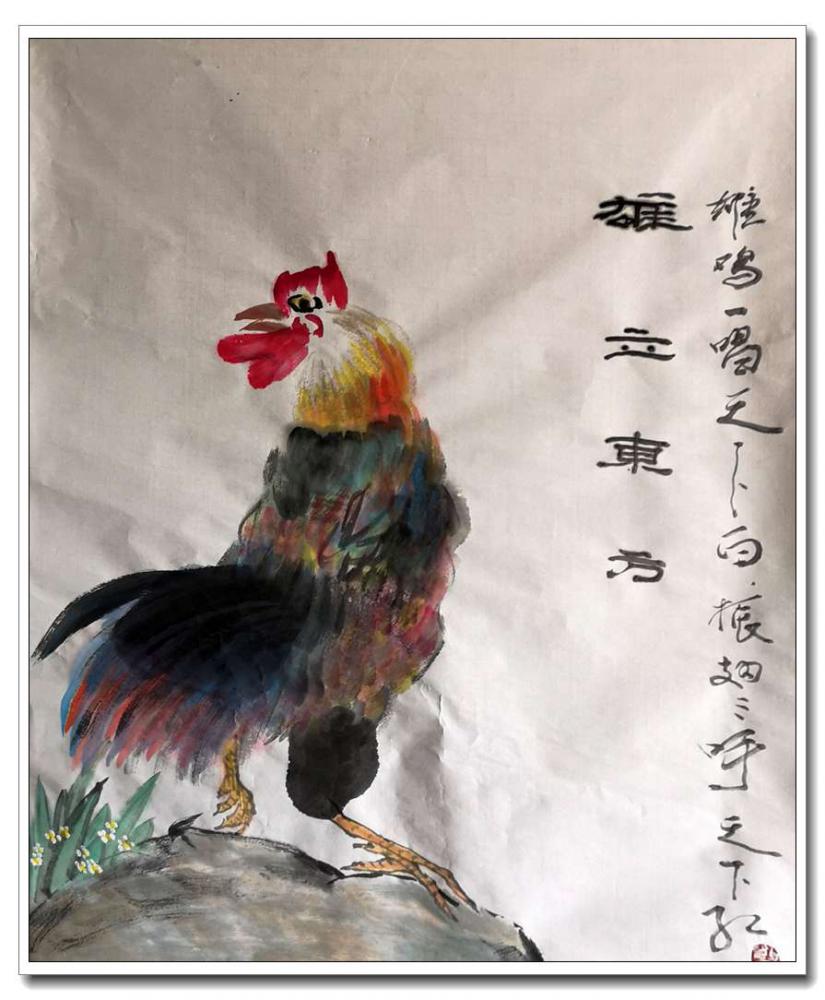 雄鸣一唱天下白振翅二呼天下红
雄立東方